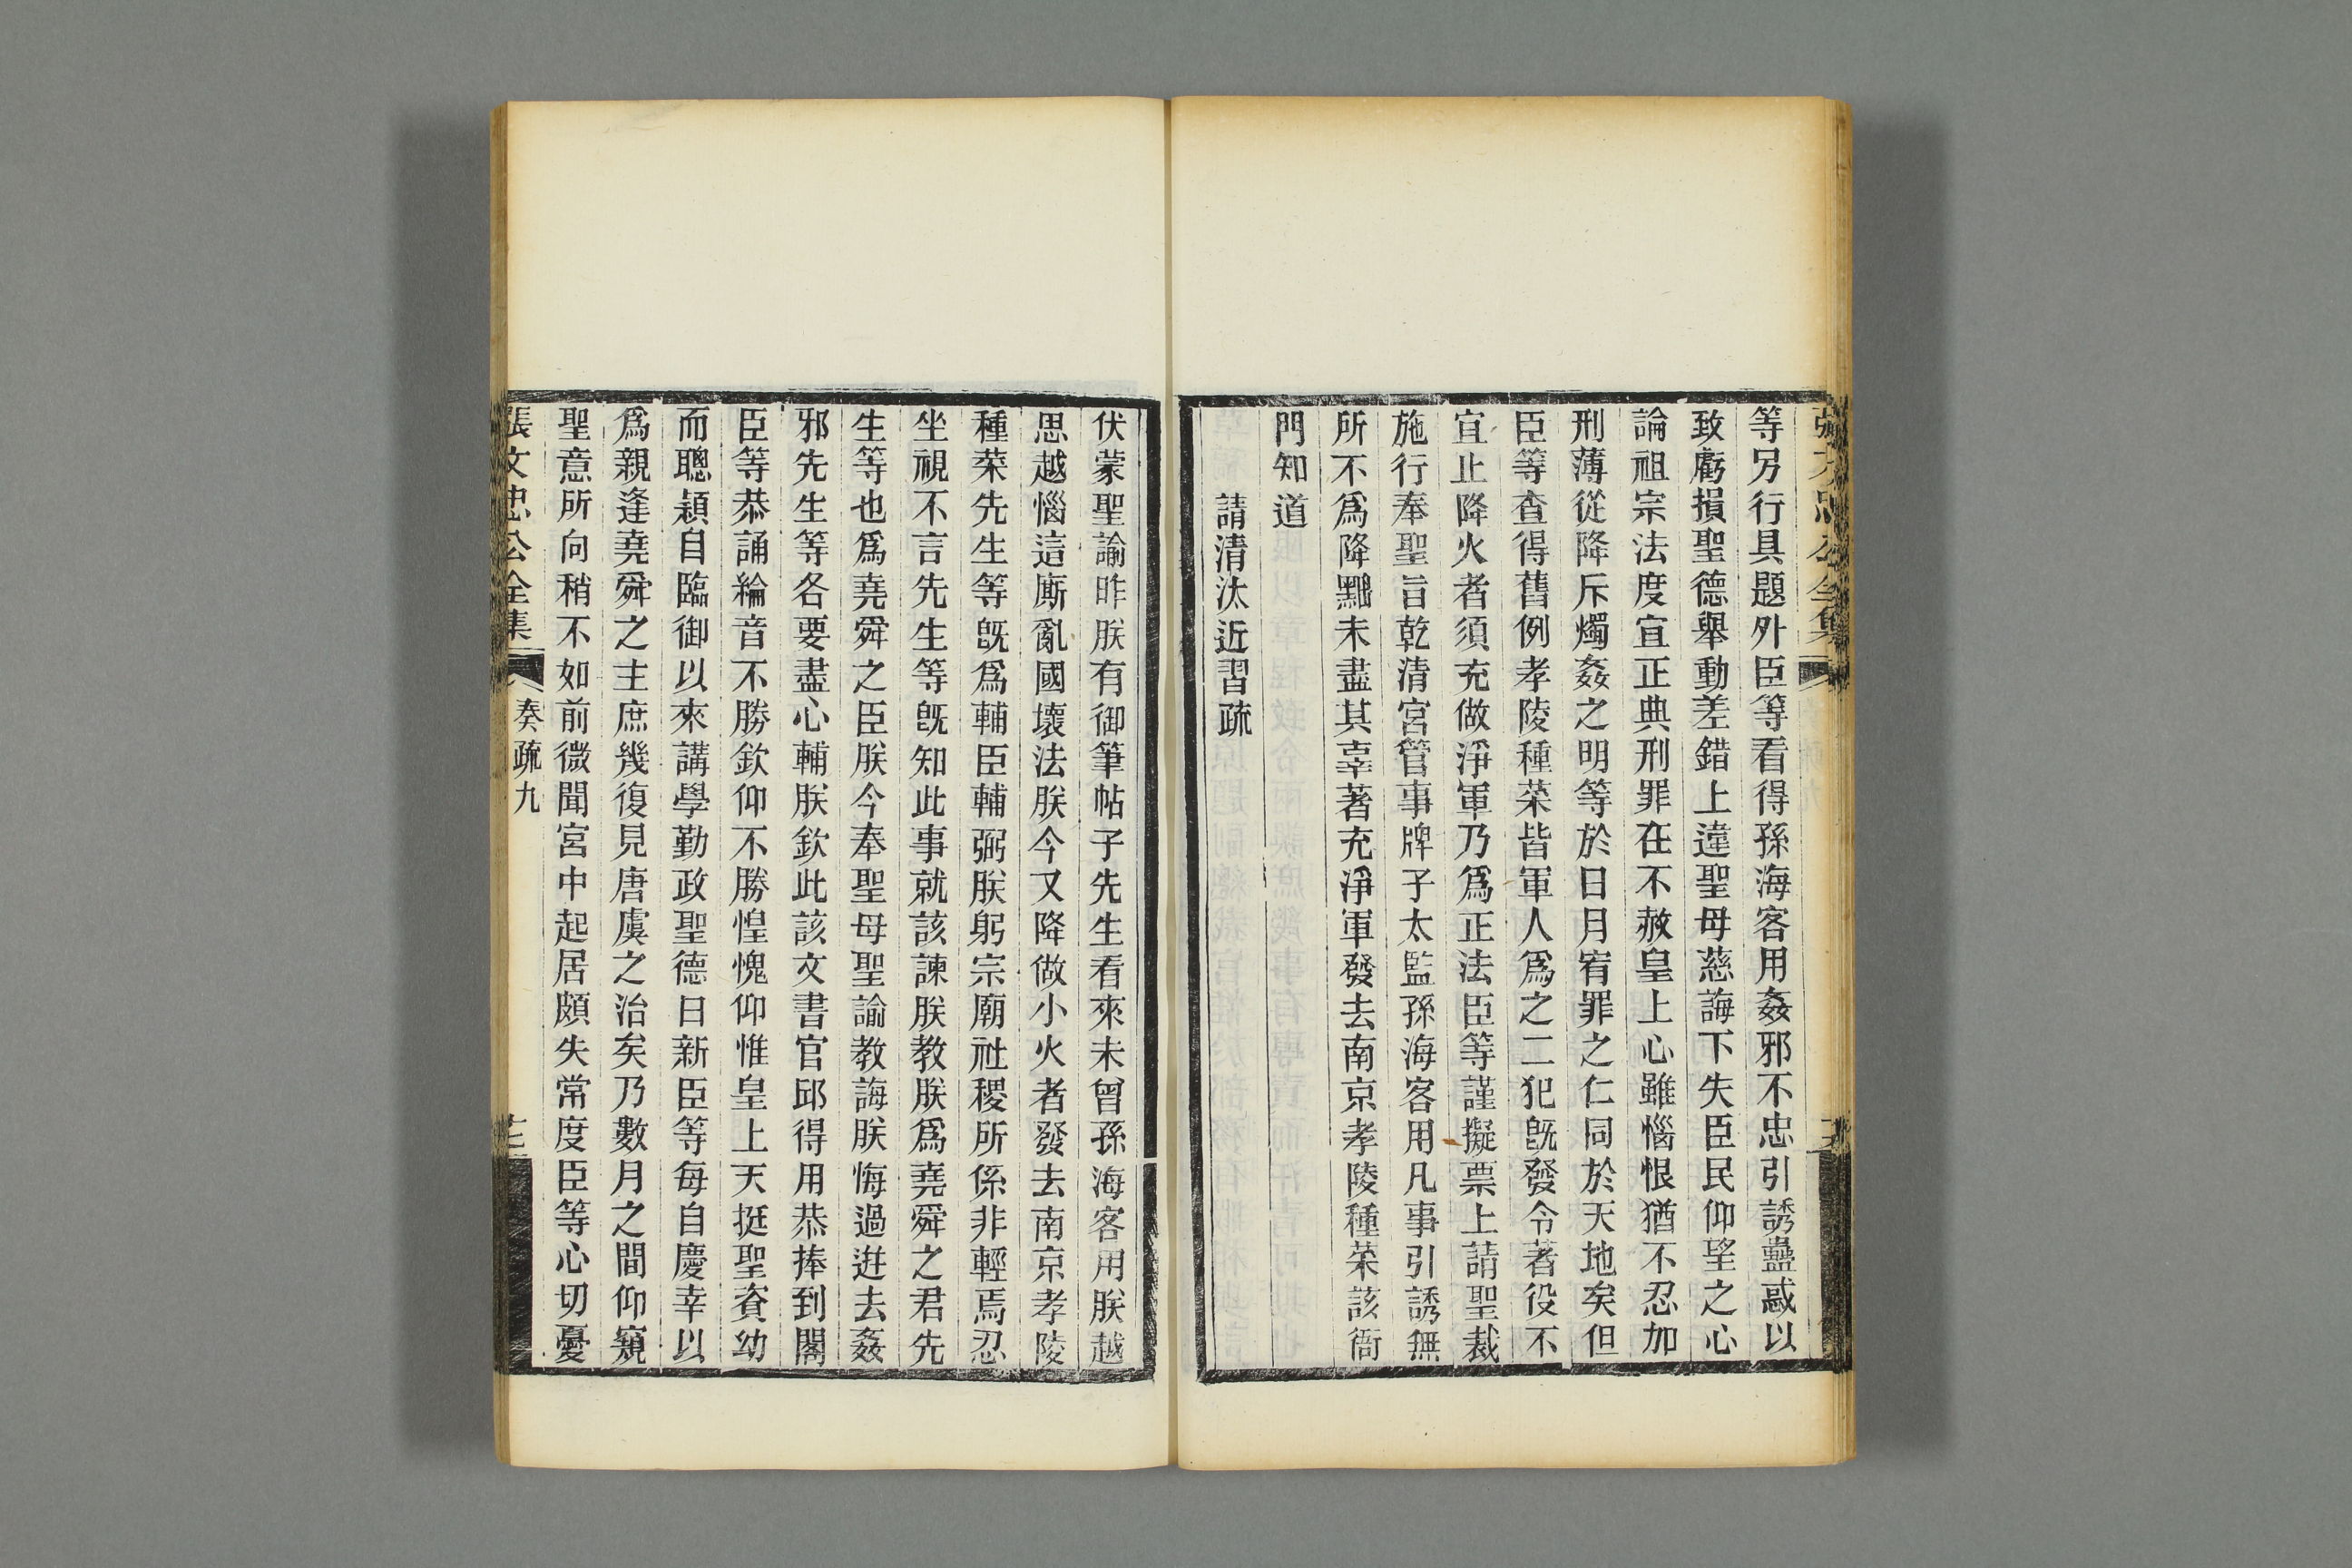 等另行具題外臣等看得孫海客用姦邪不忠引誘蠱惑以
致虧損聖德舉動差錯上違聖母慈誨下失臣民仰望之心
論祖宗法度宜正典刑罪在不赦皇上心雖惱恨猶不忍加
刑薄從降斥燭姦之明等於日月宥罪之仁同於天地矣但
臣等查得舊例孝陵種菜皆軍人爲之二犯旣發令著役不
宜止降火者須充做淨軍乃爲正法臣等謹擬票上請聖裁
施行奉聖旨乾清宮管事牌子太監孫海客用凡事引誘無
所不爲降黜未盡其辜著充淨軍發去南京孝陵種菜該衙
門知道
請清汰近習疏
伏蒙聖諭昨朕有御筆帖子先生看來未曾孫海客用朕越
思越惱這廝亂國壞法朕今又降做小火者發去南京孝陵
種菜先生等旣爲輔臣輔弼朕躬宗廟社稷所係非輕焉忍
坐視不言先生等旣知此事就該諫朕教朕爲堯舜之君先
生等也爲堯舜之臣朕今奉聖母聖諭教誨朕悔過迸去姦
邪先生等各要盡心輔朕欽此該文書官邱得用恭捧到閣
臣等恭誦綸音不勝欽仰不勝惶愧仰惟皇上天挺聖資幼
而聰穎自臨御以來講學勤政聖德日新臣等每自慶幸以
爲親逢堯舜之主庶幾復見唐虞之治矣乃數月之間仰窺
聖意所向稍不如前微聞宮中起居頗失常度臣等心切憂
張文忠公全集
奏疏九